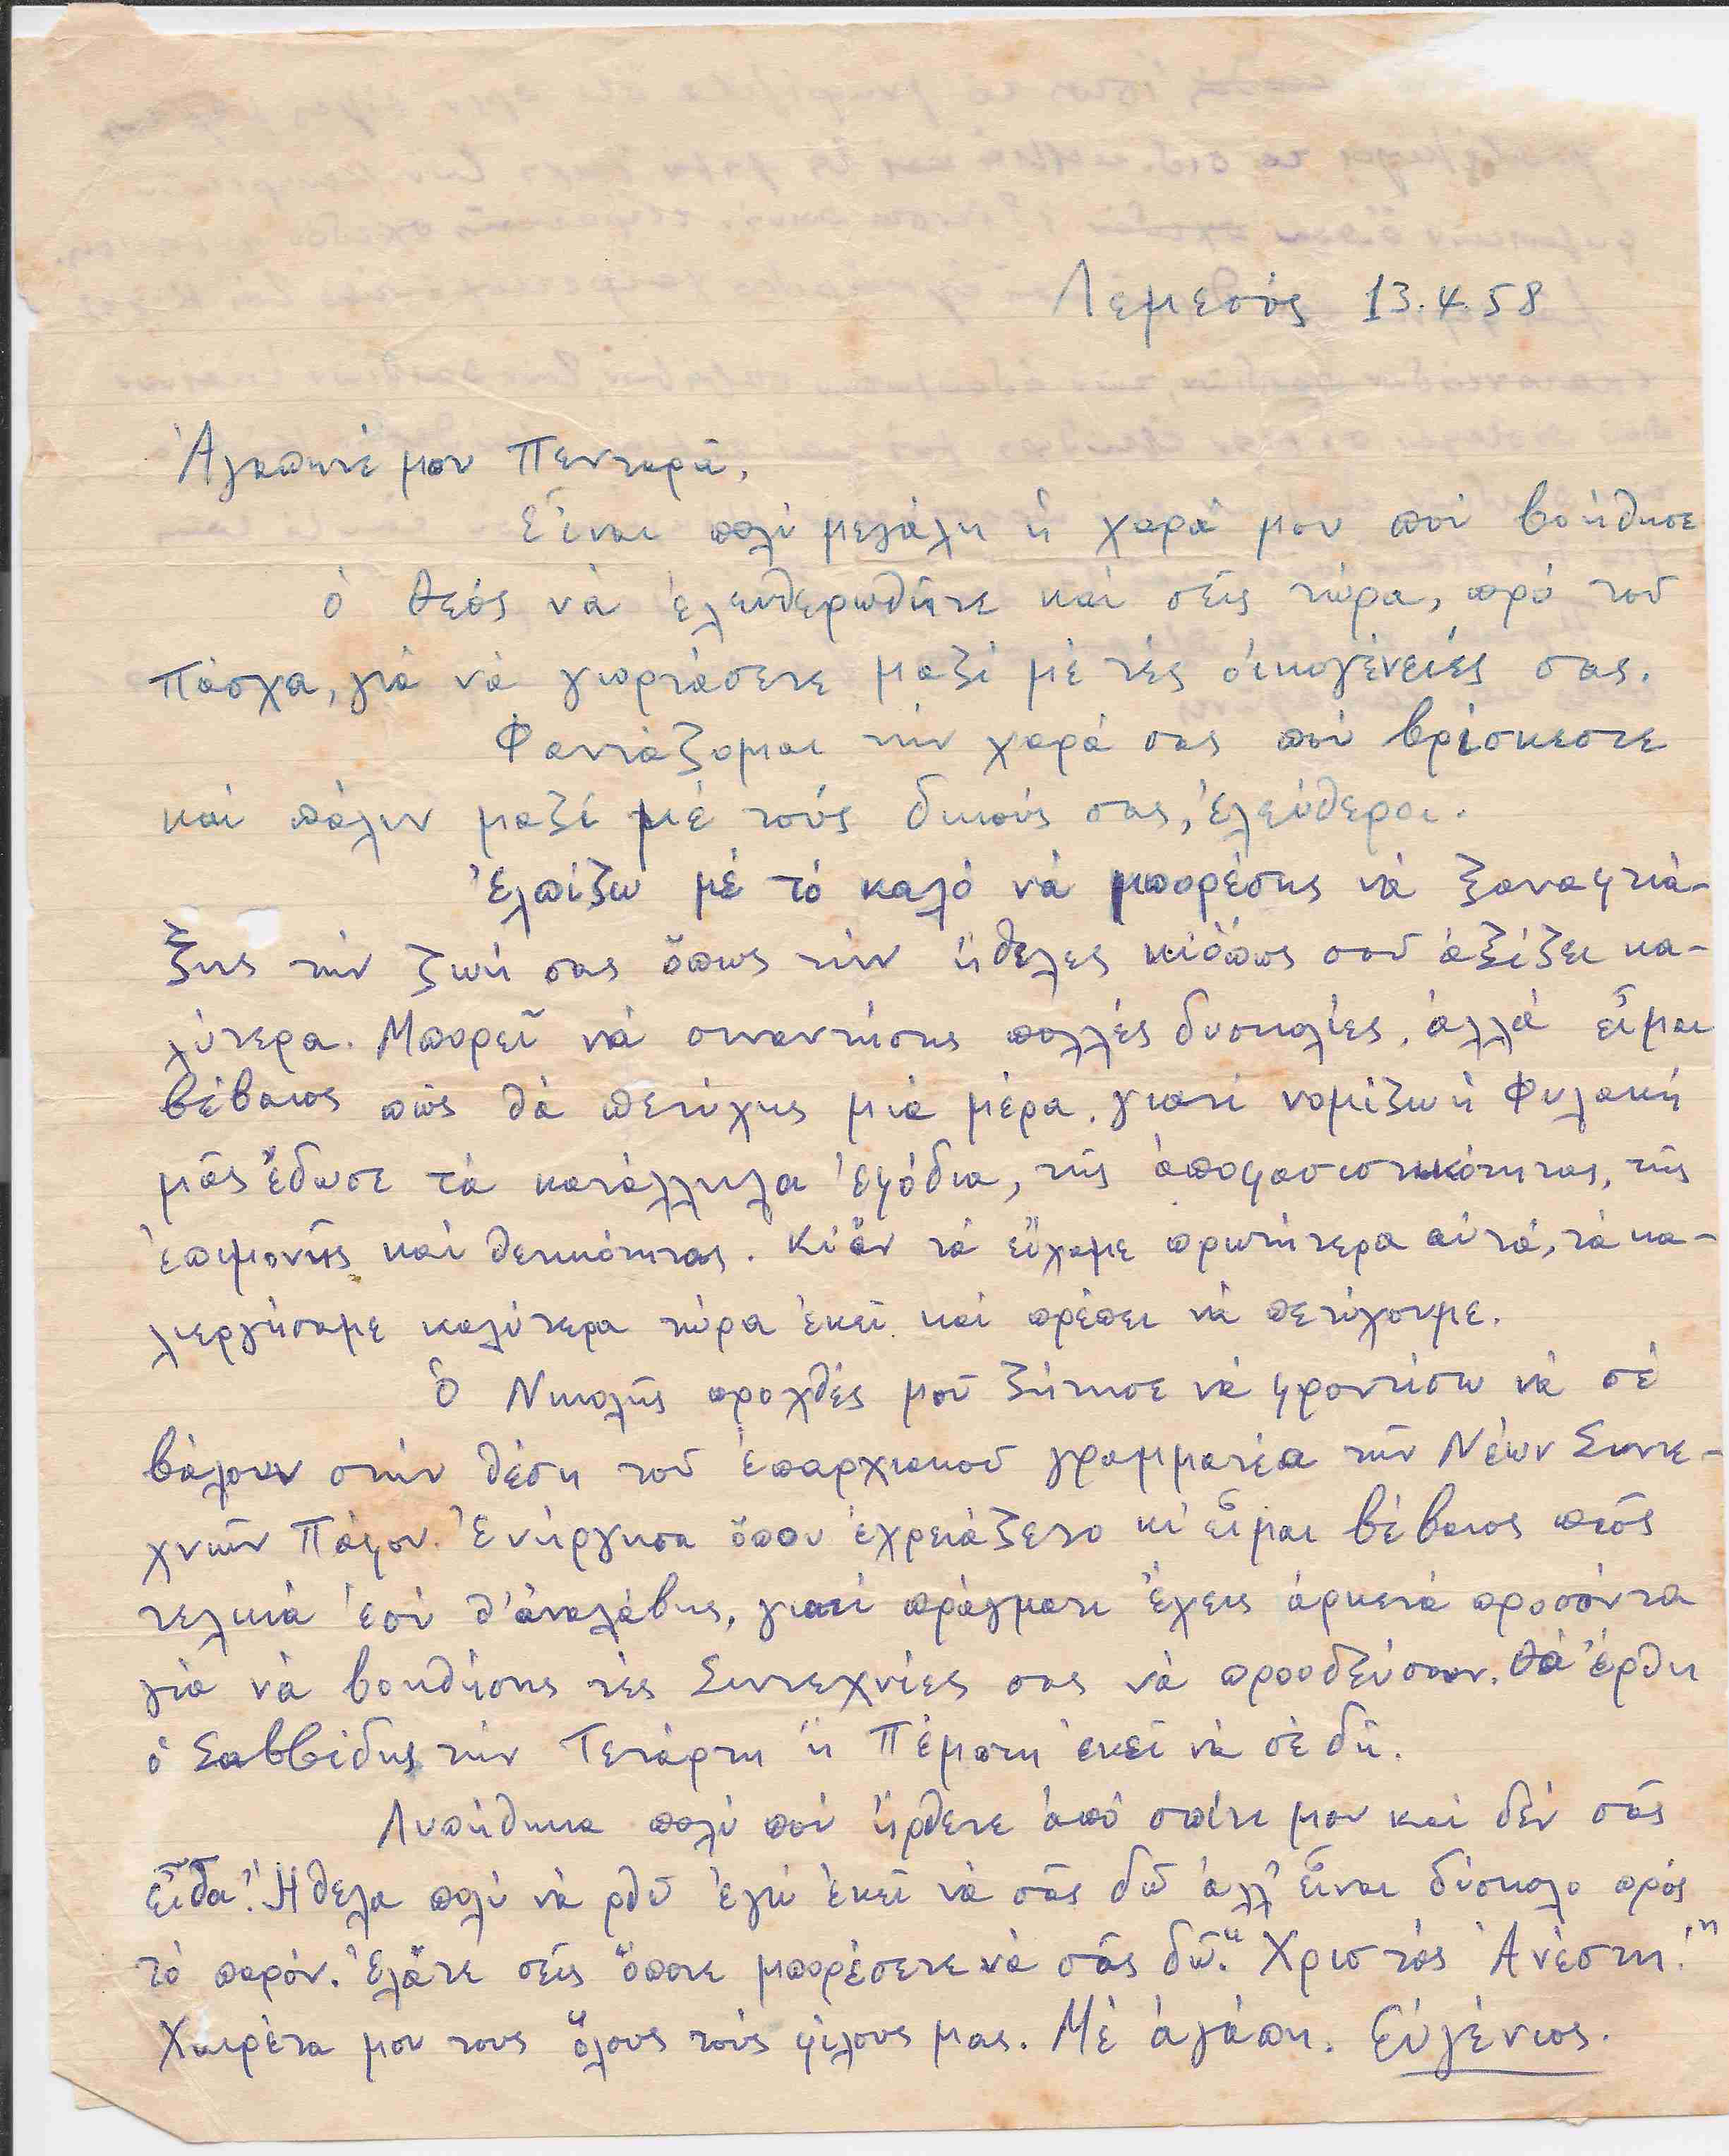 Λεμεσός 13.4.58
Ἀγαπητέ μου Πενταρᾶ,
Εἶναι πολύ μεγάλη ἡ χαρά μου πού βοήθησε
ὁ θεός νὰ ἐλευθερωθῆτε καί σεῖς τώρα, πρό τοῦ
Πάσχα, γιά νὰ γιορτάσετε μαζί μέ τές οἰκογένειές σας.
Φαντάζομαι τήν χαρά σας πού βρίσκεστε
καί πάλιν μαζί μέ τούς δικούς σας, ἐλεύθεροι.
Ἐλπίζω μέ τό καλό νά μπορέσης νά ξαναφτιά-
ξης τήν ζωή σας ὅπως τήν ἤθελες κι' ὅπως σοῦ ἀξίζει κα-
λύτερα. Μπορεῖ νά συναντήσης πολλές δυσκολίες, ἀλλά εἶμαι
βέβαιος πώς θά πετύχης μιά μέρα, γιατί νομίζω ἡ Φυλακή
μᾶς ἔδωσε τά κατάλληλα ἐφόδια, τῆς ἀποφασιστικότητας, τῆς
ἐπιμονῆς καί θετικότητας. Κι' ἄν τά εἴχαμε πρωτήτερα αὐτά, τά κα-
λιεργήσαμε καλύτερα τώρα ἐκεῖ καί πρέπει νά πετύχουμε.
Ὁ Νικολῆς προχθές μοῦ ζήτησε νά φροντίσω νά σέ
βάλουν στήν θέση τοῦ ἐπαρχιακοῦ γραμματέα τῶν Νέων Συντε-
χνιῶν Πάφου. Ἐνήργησα ὅπου ἐχρειάζετο κι' εἶμαι βέβαιος πώς
τελικά ἐσύ θ' ἀναλάβης, γιατί πράγματι ἔχεις ἀρκετά προσόντα
γιά νὰ βοηθήσης τές Συντεχνίες σας νά προοδεύσουν. Θά ἔρθη
ὁ Σαββίδης τήν Τετάρτη ἤ Πέμπτη ἐκεῖ νά σέ δῆ.
Λυπήθηκα πολύ πού ἤρθετε ἀπό σπίτι μου καί δέν σᾶς
εἶδα. Ἤθελα πολύ νά ρθῶ ἐγώ ἐκεῖ νά σᾶς δῶ ἀλλ' εἶναι δύσκολο πρός
τό παρόν. Ἐλᾶτε σεῖς ὅποτε μπορέσετε νά σᾶς δῶ. "Χριστός Ἀνέστη!"
Χαιρέτα μου τους ὅλους τούς φίλους μας. Μέ ἀγάπη. Εὐγένιος.